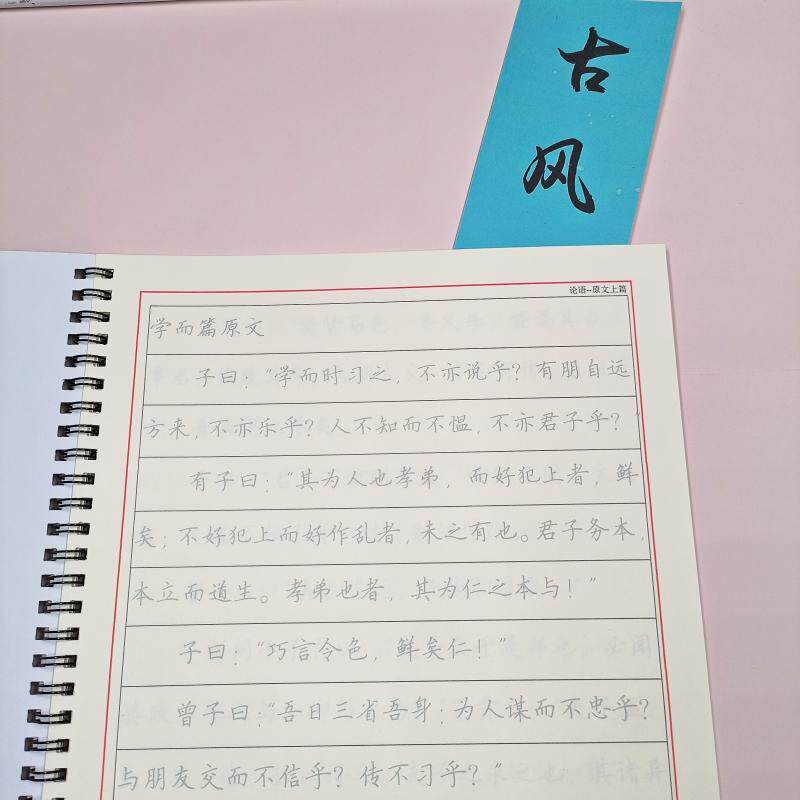 古
风
论语-原文上篇
学而篇原文
子曰："学而时习之，不亦说乎？有朋自远
方来，不亦乐乎？人不知而不愠，不亦君子乎？"
有子曰："其为人也孝弟，而好犯上者，鲜
矣；不好犯上而好作乱者，未之有也。君子务本，
本立而道生。孝弟也者，其为仁之本与！"
子曰："巧言令色，鲜矣仁！"
曾子曰："吾日三省吾身：为人谋而不忠乎？
与朋友交而不信乎？传不习乎？"